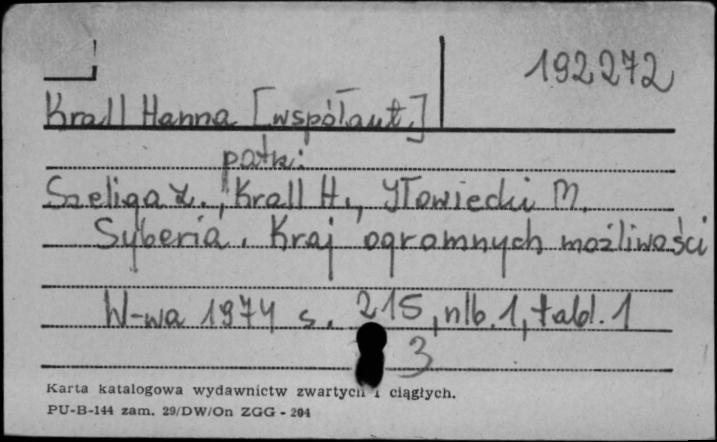 192272
Krall Hanna [współaut.]
patrz:
Szeliga Z., Krall H., Iłowiecki M.
Syberia. Kraj ogromnych możliwości
W-wa 1974 s. 215, nlb. 1, tabl. 1
3
Karta katalogowa wydawnictw zwartych i ciągłych.
PU-B-144 zam. 29/DW/On ZGG - 204